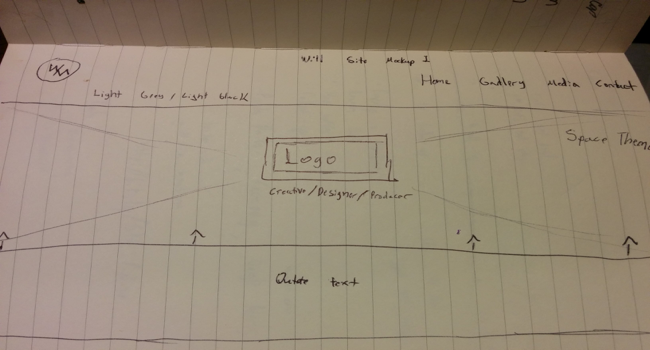 Site Mockup 1
Home Gadllery Media Contact
Light Gren / Light black
Space Theme
Logo
Creative/Designer/Producer
text